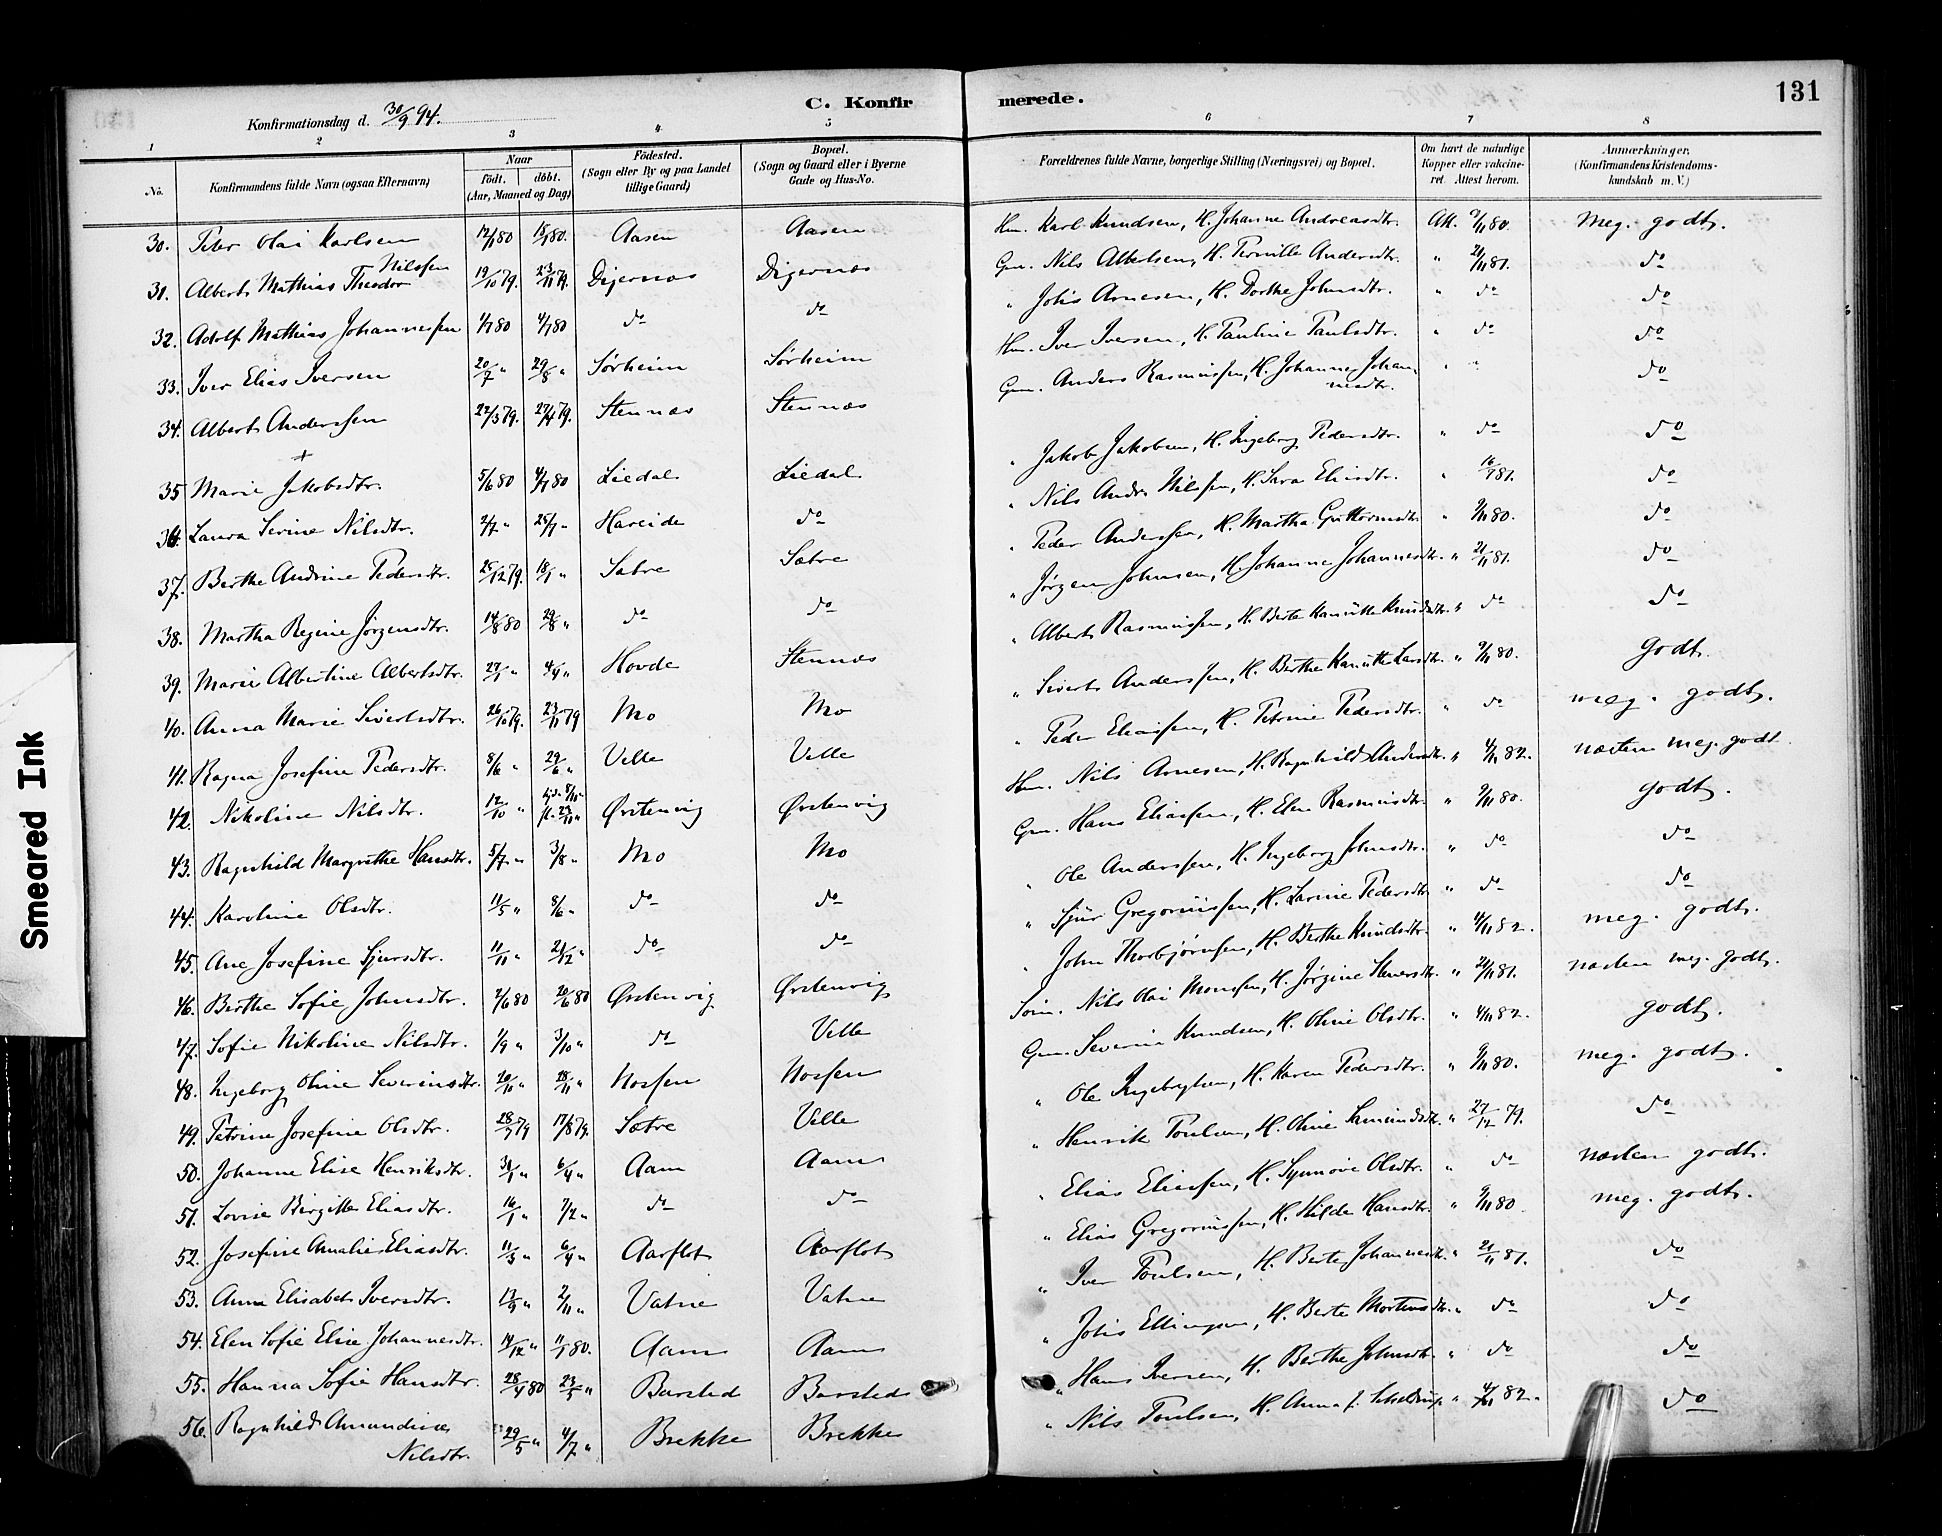 Smeared Ink
131
C. Konfirmerede.
Konfirmationsdag d. 30/9 94.
1 2 3 4 5 6 7 8
No. Konfirmandens fulde Navn (ogsaa Efternavn) Naar födt. döbt. (Aar, Maaned og Dag) Födested. (Sogn eller By og paa Landet tillige Gaard) Bopæl. (Sogn og Gaard eller i Byerne Gade og Hus-No. Forældrenes fulde Navne, borgerlige Stilling (Næringsvei) og Bopæl. Om havt de naturlige Kopper eller vakcineret. Attest herom. Anmærkninger, (Konfirmandens Kristendomskundskab m. V.)
30. Peter Olai Karlsen 12/1 80 18/1 80. Aasen Aasen Hm. Karl Knudsen, H. Johanne Andreasdtr. Att. 9/11 80. Meg. godt.
31. Albert Mathias Theodor Nilssen 19/10 79. 23/11 79. Digernæs Digernæs Gm. Nils Albertsen, H. Pernille Andersdtr. " 21/11 81. do
32. Adolf Mathias Johannessen 1/1 80 4/1 80 do do " Johs Arnesen, H. Dorthe Johnsdtr. " do do
33. Iver Elias Iversen 20/7 " 29/8 " Sørheim Sørheim Hm. Iver Iversen, H. Pauline Paulsdtr. " do do
34. Albert Anderssen 22/3 79. 27/4 79. Stennæs Stennæs Gm. Anders Rasmussen, H. Johanne Johannesdtr. " " do
35 Marie Jakobsdtr. 5/6 80 4/7 80 Liedal Liedal " Jakob Jakobsen, H. Ingeborg Pedersdtr. " do do
36. Laura Serine Nilsdtr. 2/7 " 25/7 " Hareide do " Nils Andr. Nilssen, H. Sara Eliasdtr. " 16/7 81. do
37. Berthe Andrine Pedersdtr. 25/12 79. 18/1 " Sætre Sætre " Peder Anderssen, H. Martha Guttormsdtr. " 9/11 80. do
38. Martha Regine Jørgensdtr. 14/8 80 29/8 " do do " Jørgen Johnsen, H. Johanne Johannesdtr. " 21/11 81. do
39. Marie Albertine Albertsdtr. 27/1 " 4/4 " Hovde Stennæs " Albert Rasmussen, H. Berte Knudsdtr. " do do
40. Anna Marie Sivertsdtr. 26/10 79. 23/11 79 Mo Mo " Sivert Anderssen, H. Berthe Larsdtr. " 9/11 80. Godt.
41. Ragna Josefine Pedersdtr. 8/6 " 29/6 " Velle Velle " Peder Eliassen, H. Petrine Pedersdtr. " do meg. godt.
42. Nikoline Nilsdtr. 12/10 " Ørstenvig Ørstenvig Hm. Nils Arnesen, H. Ragnhild Andersdtr. " 4/11 82. næsten meg. godt.
43. Ragnhild Margrethe Hansdtr. 5/7 " 3/8 " Mo Mo Gm. Hans Eliassen, H. Elen Rasmusdtr. " 9/11 80. godt.
44. Karoline Olsdtr. 11/5 " 8/6 " do do " Ole Anderssen, H. Ingeborg Johnsdtr. " do do
45. Ane Josefine Sjursdtr. 11/11 " 21/12 " do do " Sjur Gregoriussen, H. Larine Pedersdtr. " do do
46. Berthe Sofie Johnsdtr. 2/6 80 20/6 80 Ørstenvig Ørstenvig " John Thorbjørnsen, H. Berthe Knudsdtr. " 4/11 82. meg. godt.
47. Sofie Nikoline Nilsdtr. 1/9 " 3/10 " do Velle Nils Olai Monssen, H. Jørgine " 21/11 81. næsten meg. godt.
48. Ingeborg Oline Severinsdtr. 20/10 " 28/11 " Nossen Nossen Gm. Severin Knudsen, H. Oline Olsdtr. " 4/11 82. godt.
49. Petrine Josefine Olsdtr. 28/7 79 17/8 79. Sætre Velle " Ole Ingebrigtsen, H. Karen Pedersdtr. " 9/11 80. meg. godt.
50. Johanne Elise Henriksdtr. 31/1 " 6/4 " Aam Aam " Henrik Poulsen, H. Oline " 27/12 79. do
51. Lovise Birgitte Eliasdtr. 16/1 " 7/2 " do do " Elias Eliassen, H. Synnøve Olsdtr. " do næsten godt.
52. Josefine Amalie Eliasdtr. 11/3 " 6/4 " Aarflot Aarflot " Elias Gregoriussen, H. Hilde Hansdtr. " 9/11 80. meg. godt.
53. Anna Elisabet Iversdtr. 13/9 " 2/11 " Vatne Vatne " Iver Poulsen, H. Berte Johannesdtr. " 21/11 81. do
54. Elen Sofie Elise Johannesdtr. 14/12 " 11/1 80. Aam Aam " Johs Ellingsen, H. Berte Mortensdtr. " do do
55. Hanna Sofie Hansdtr. 28/4 80 23/5 " Barsted Barsted " Hans Iversen, H. Berthe Johnsdtr. " do do
56. Ragnhild Amundine Nilsdtr. 29/5 " 4/7 " Brekke Brekke " Nils Poulsen, H. Anna f. " 4/11 82. do